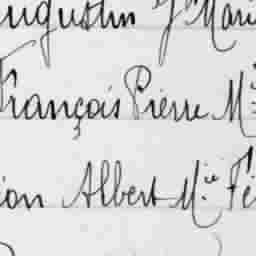 Augustin J Mari
François Pierre M
ion Albert M.ie Fé